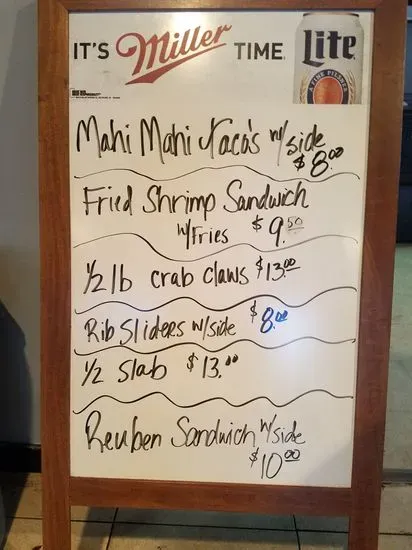 IT'S Miller TIME. Lite
A FINE PILSNER
Mahi Mahi Taco's w/side
$8.00
Fried Shrimp Sandwich
w/Fries $9.50
1/2 lb crab claws $13.00
Rib Sliders w/side $8.00
1/2 Slab $13.00
Reuben Sandwich w/side
$10.00